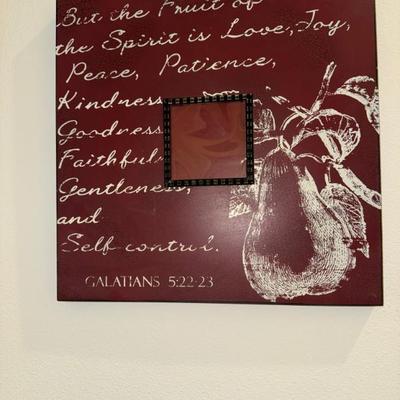 But the Fruit of
the Spirit is Love, Joy,
Peace, Patience,
Kindness
Goodness
Faithful
Gentleness,
and
Self-control.
GALATIANS 5:22-23